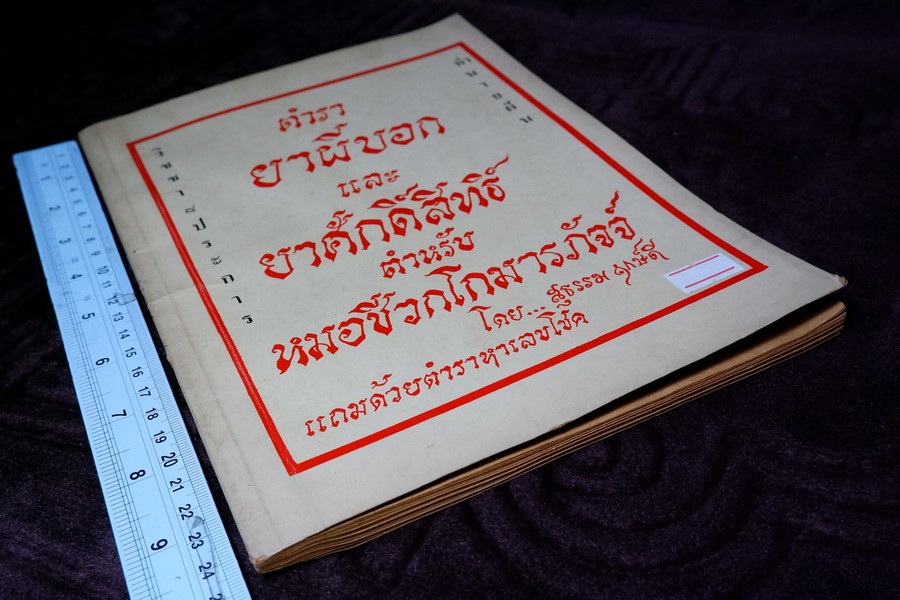 ตำรา
ยาผีบอก
และ
ยาศักดิ์สิทธิ์
ตำหรับ
หมอชีวกโกมารภัจจ์
โดย... สุธรรม ฤกษ์ดี
แถมด้วยตำราหาเลขโชค
1 2 3 4 5 6 7 8 9
10 11 12 13 14 15 16 17 18 19 20 21 22 23 24